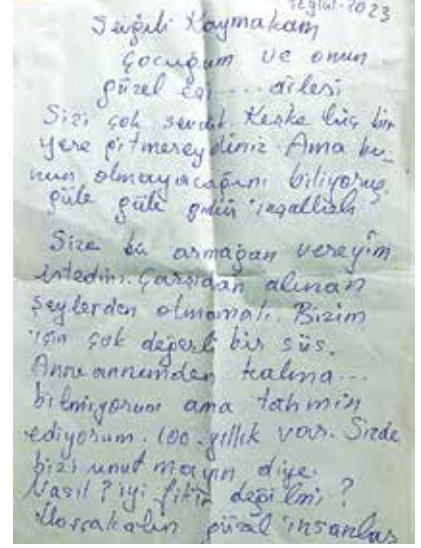 Eylül-2023
Sevgili Kaymakam
Çocuğum ve onun
güzel eşi .... ailesi
Sizi çok sevdik. Keşke hiç bir
yere gitmeseydiniz. Ama bu-
nun olmayacağını biliyoruz.
güle güle gidin inşallah
Size bir armağan vereyim
istedim. Çarşıdan alınan
şeylerden olmamalı. Bizim
için çok değerli bir süs.
Anneannemden kalma...
bilmiyorum ama tahmin
ediyorum. 100.yıllık var. Sizde
bizi unutmayın diye.
Nasıl? iyi fikir değilmi?
Hoşçakalın güzel insanlar